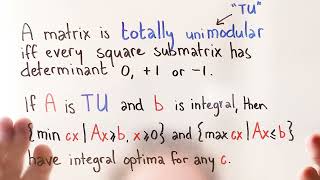 "TU"
A matrix is totally unimodular
iff every square submatrix has
determinant 0, +1 or -1.
If A is TU and b is integral, then
{min cx | Ax ≥ b, x ≥ 0} and {max cx | Ax ≤ b}
have integral optima for any c.